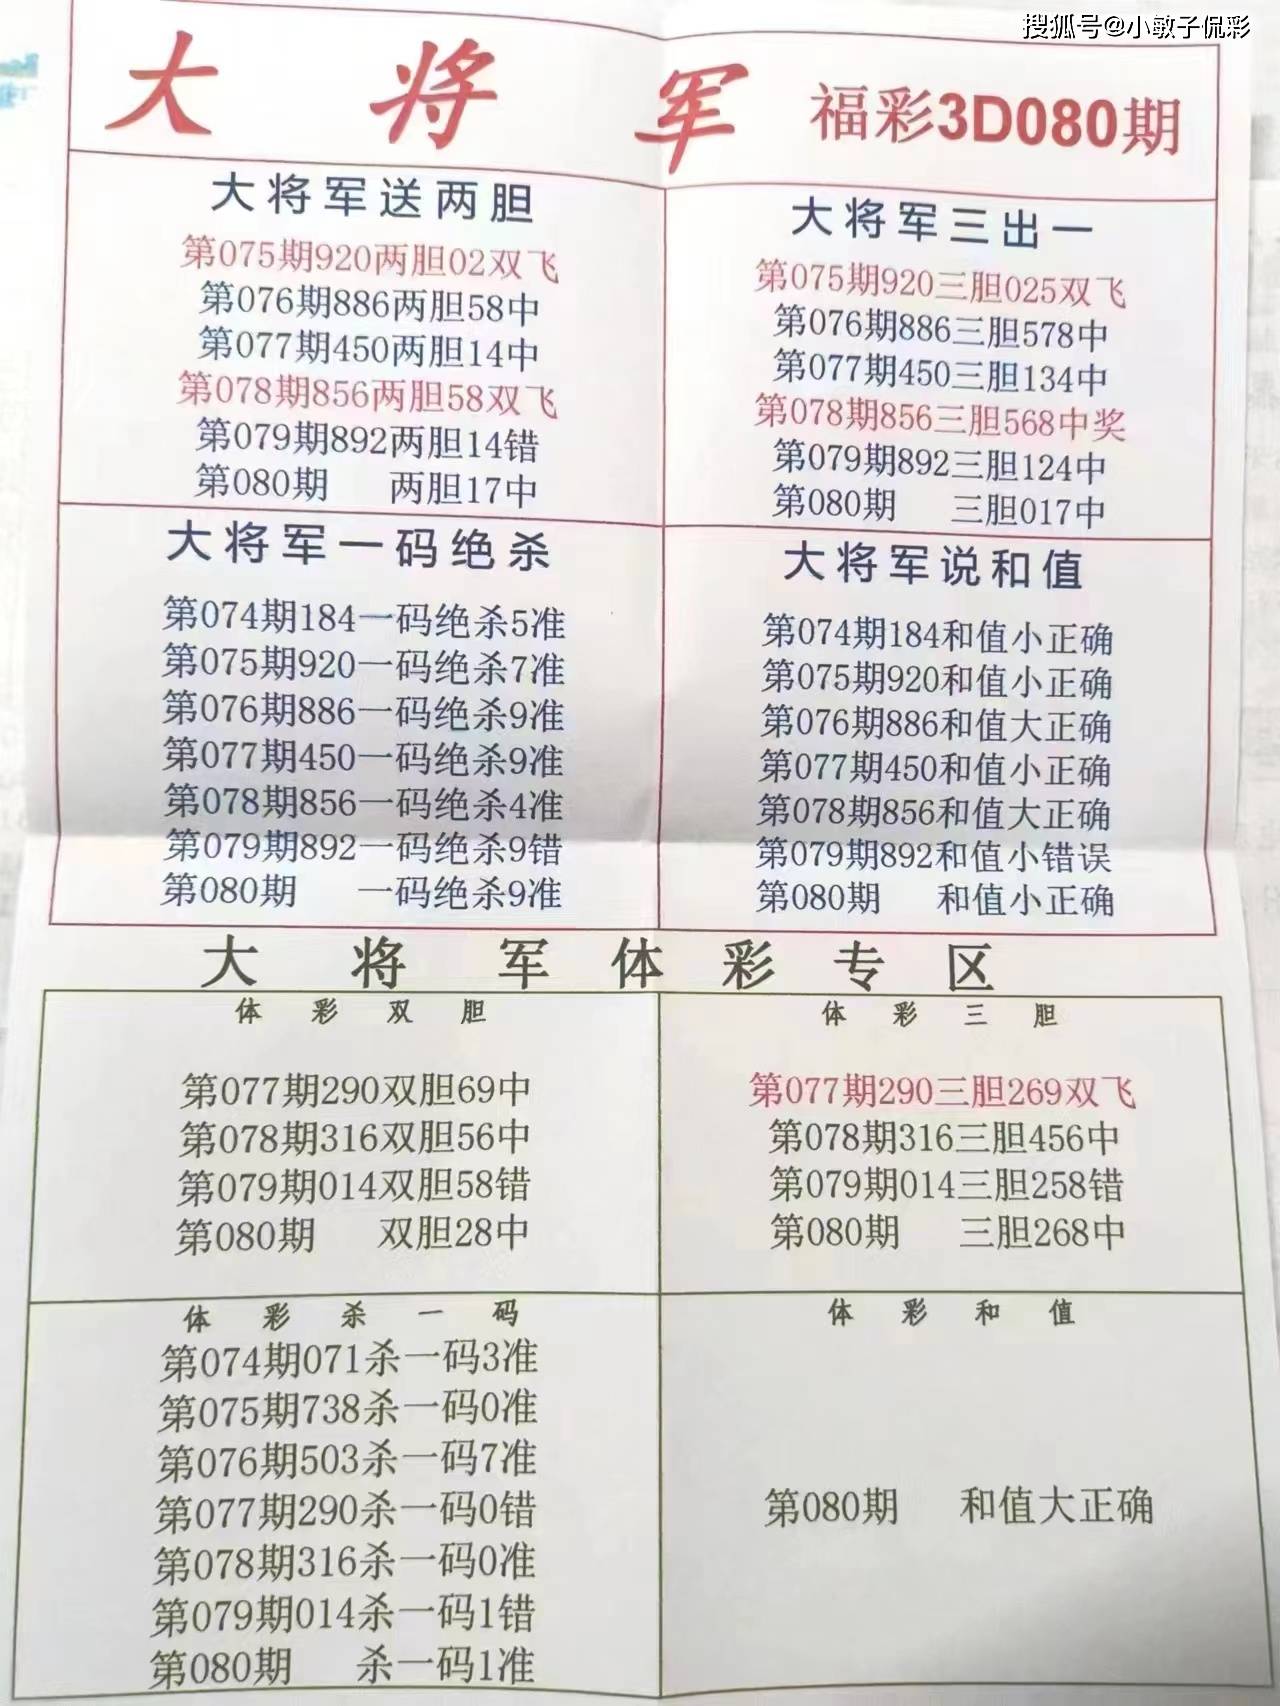 搜狐号@小敏子侃彩
大将军 福彩3D080期
大将军送两胆
第075期920两胆02双飞
第076期886两胆58中
第077期450两胆14中
第078期856两胆58双飞
第079期892两胆14错
第080期 两胆17中
大将军三出一
第075期920三胆025双飞
第076期886三胆578中
第077期450三胆134中
第078期856三胆568中奖
第079期892三胆124中
第080期 三胆017中
大将军一码绝杀
第074期184一码绝杀5准
第075期920一码绝杀7准
第076期886一码绝杀9准
第077期450一码绝杀9准
第078期856一码绝杀4准
第079期892一码绝杀9错
第080期 一码绝杀9准
大将军说和值
第074期184和值小正确
第075期920和值小正确
第076期886和值大正确
第077期450和值小正确
第078期856和值大正确
第079期892和值小错误
第080期 和值小正确
大将军体彩专区
体彩双胆
第077期290双胆69中
第078期316双胆56中
第079期014双胆58错
第080期 双胆28中
体彩三胆
第077期290三胆269双飞
第078期316三胆456中
第079期014三胆258错
第080期 三胆268中
体彩杀一码
第074期071杀一码3准
第075期738杀一码0准
第076期503杀一码7准
第077期290杀一码0错
第078期316杀一码0准
第079期014杀一码1错
第080期 杀一码1准
体彩和值
第080期 和值大正确